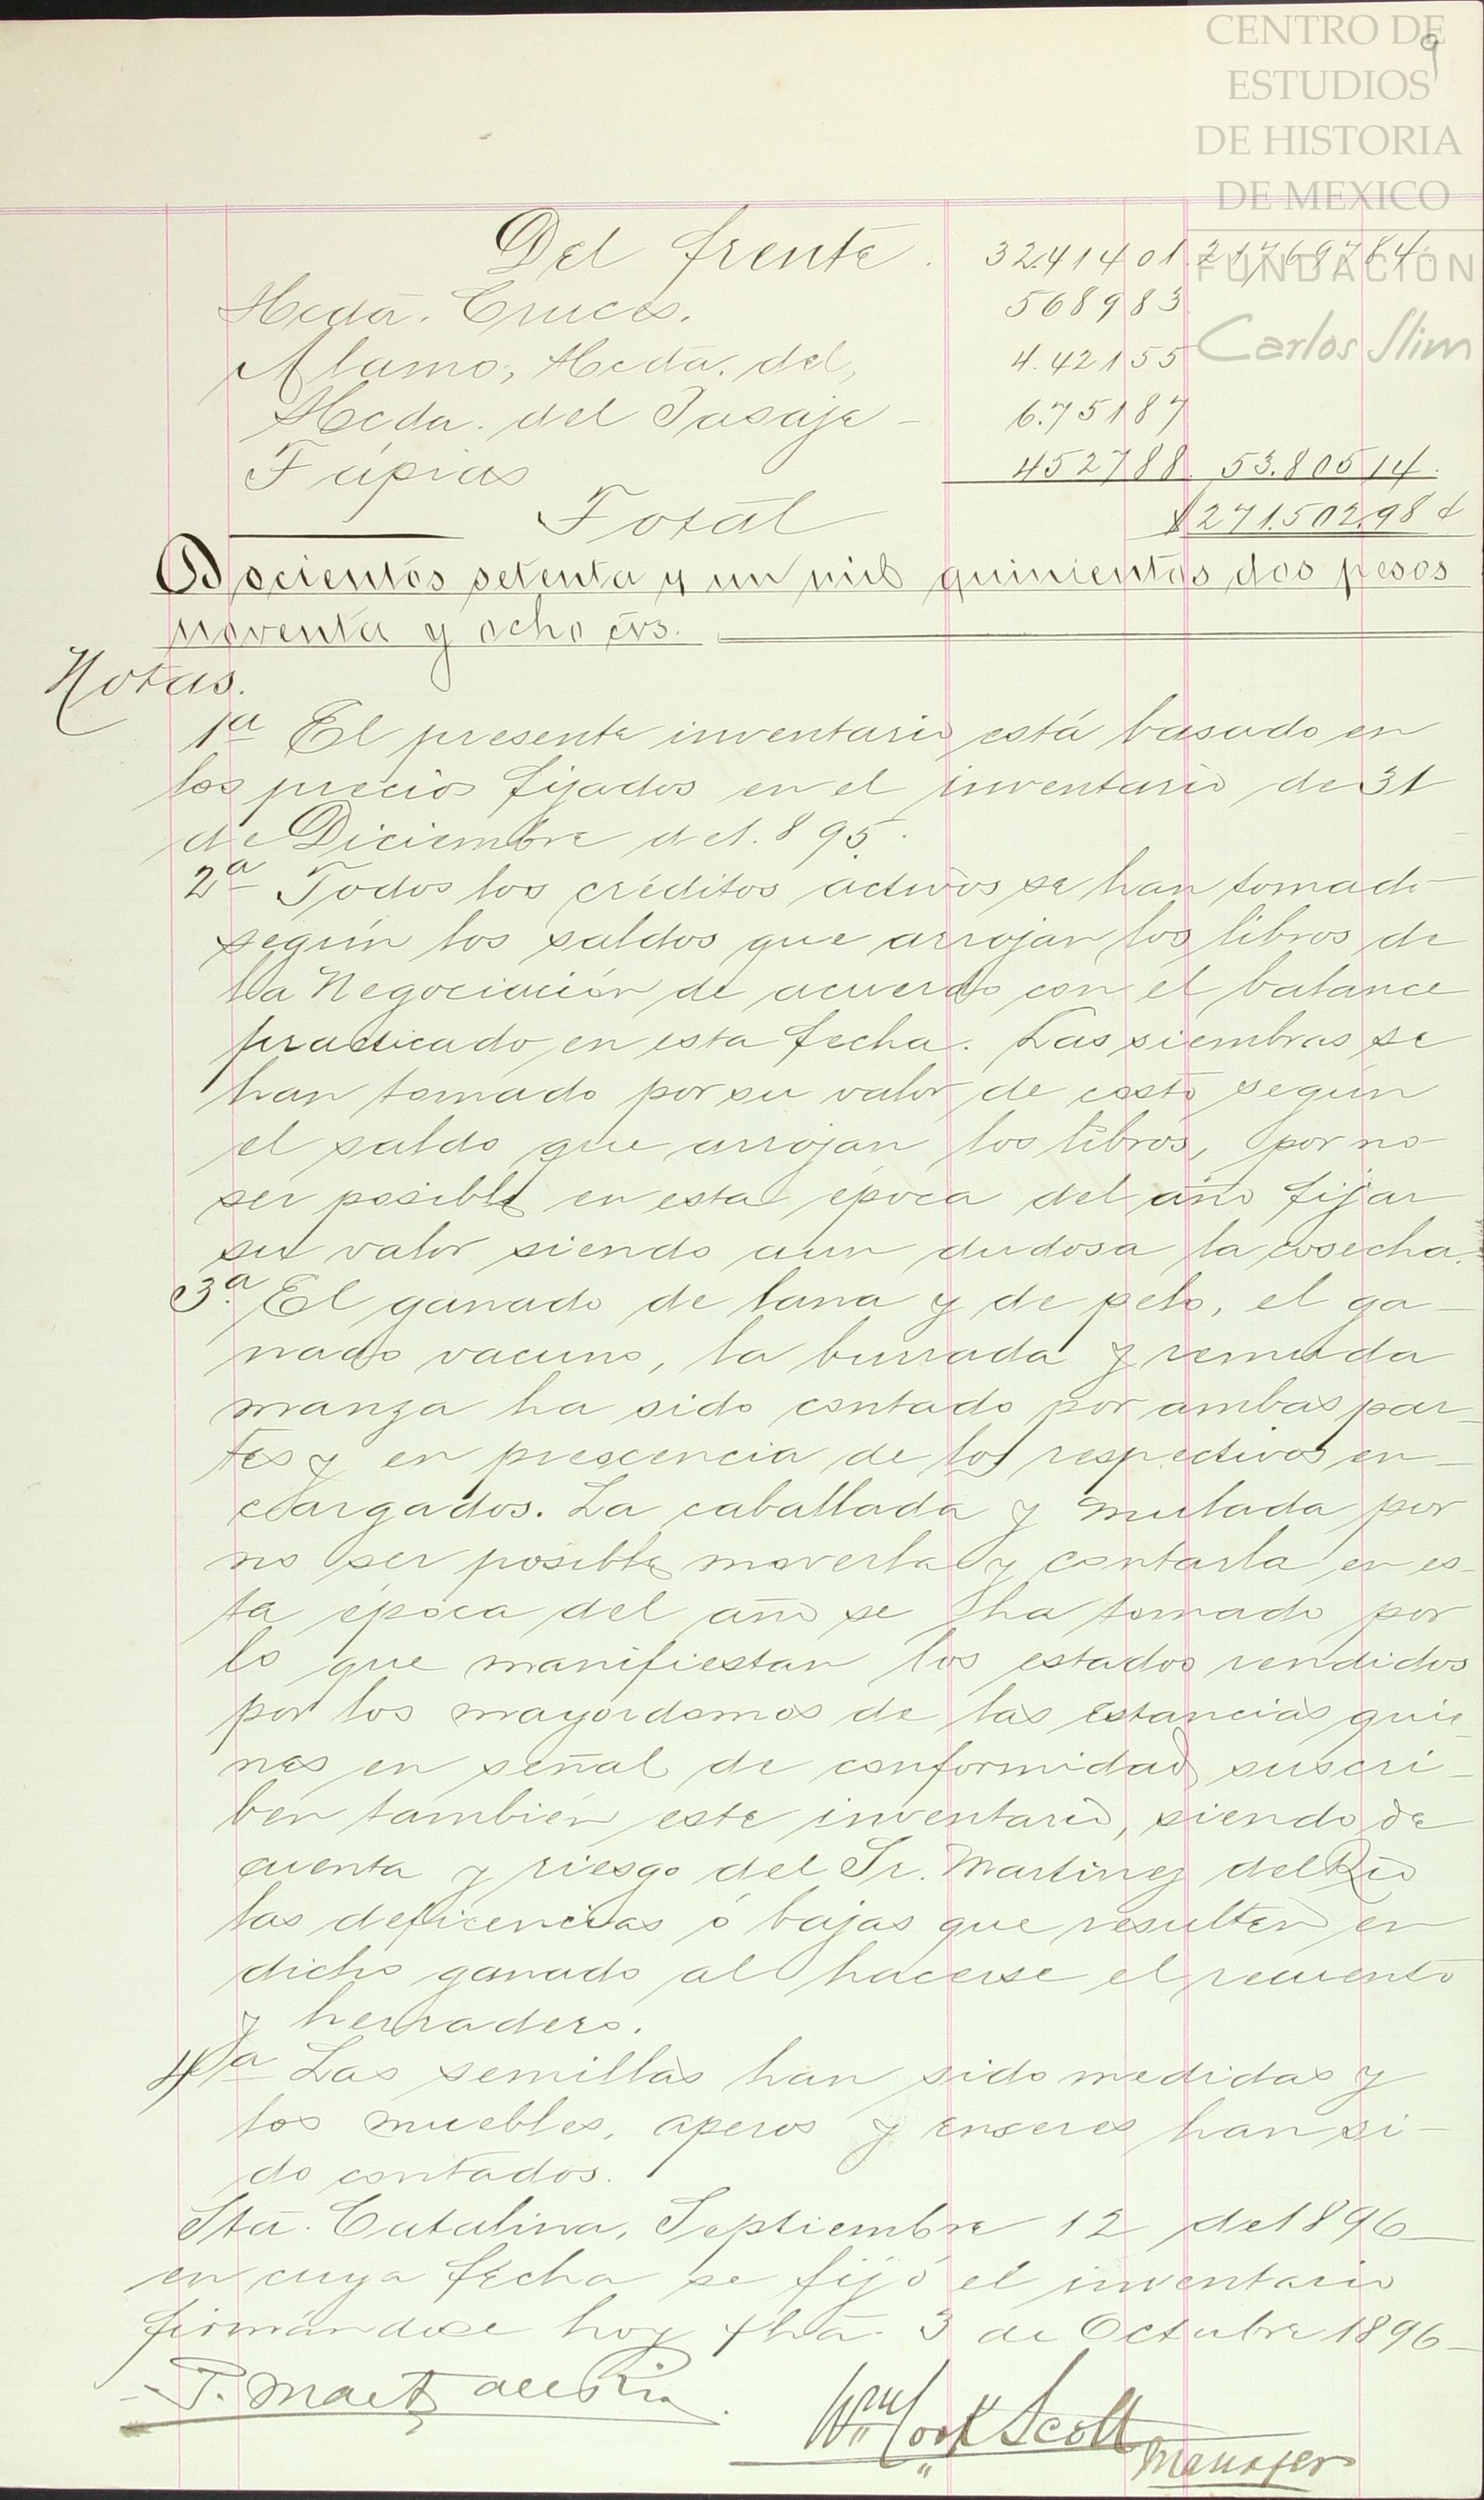 CENTRO DE
ESTUDIOS
DE HISTORIA
DE MEXICO
FUNDACIÓN
Carlos Slim
9
Del frente. 32.414 01 217.697 84.
Hcda. Cruces. 5689 83
Alamo, Hcda. del, 4.421 55
Hcda. del Pasaje - 6.751 87
Tapias 4527 88. 53.805 14.
Total $271.502.98
Docientos setenta y un mil quinientos dos pesos
noventa y ocho cvs.
Notas.
1a El presente inventario está basado en
los precios fijados en el inventario de 31
de Diciembre de 1.895.
2a Todos los créditos activos se han tomado
según los saldos que arrojan los libros de
la Negociación de acuerdo con el balance
practicado en esta fecha. Las siembras se
han tomado por su valor de costo según
el saldo que arrojan los libros, por no
ser posible en esta época del año fijar
su valor siendo aun dudosa la cosecha.
3a. El ganado de lana y de pelo, el ga-
nado vacuno, la burrada y remuda
manza ha sido contado por ambas par-
tes y en prescencia de los respectivos en-
cargados. La caballada y mulada por
no ser posible moverla y contarla en es-
ta época del año se ha tomado por
lo que manifiestan los estados rendidos
por los mayordomos de las Estancias quie-
nes en señal de conformidad suscri-
ben también este inventario, siendo de
cuenta y riesgo del Sr. Martinez del Rio
las deficencias ó bajas que resulten en
dicho ganado al hacerse el recuento
y herradero.
4a Las semillas han sido medidas y
los muebles, aperos y enseres han si-
do contados.
Sta. Catalina, Septiembre 12 de 1896-
en cuya fecha se fijó el inventario
firmándose hoy fha. 3 de Octubre 1896-
P. Martz del Rio.
Wm Cook Scott
Manager